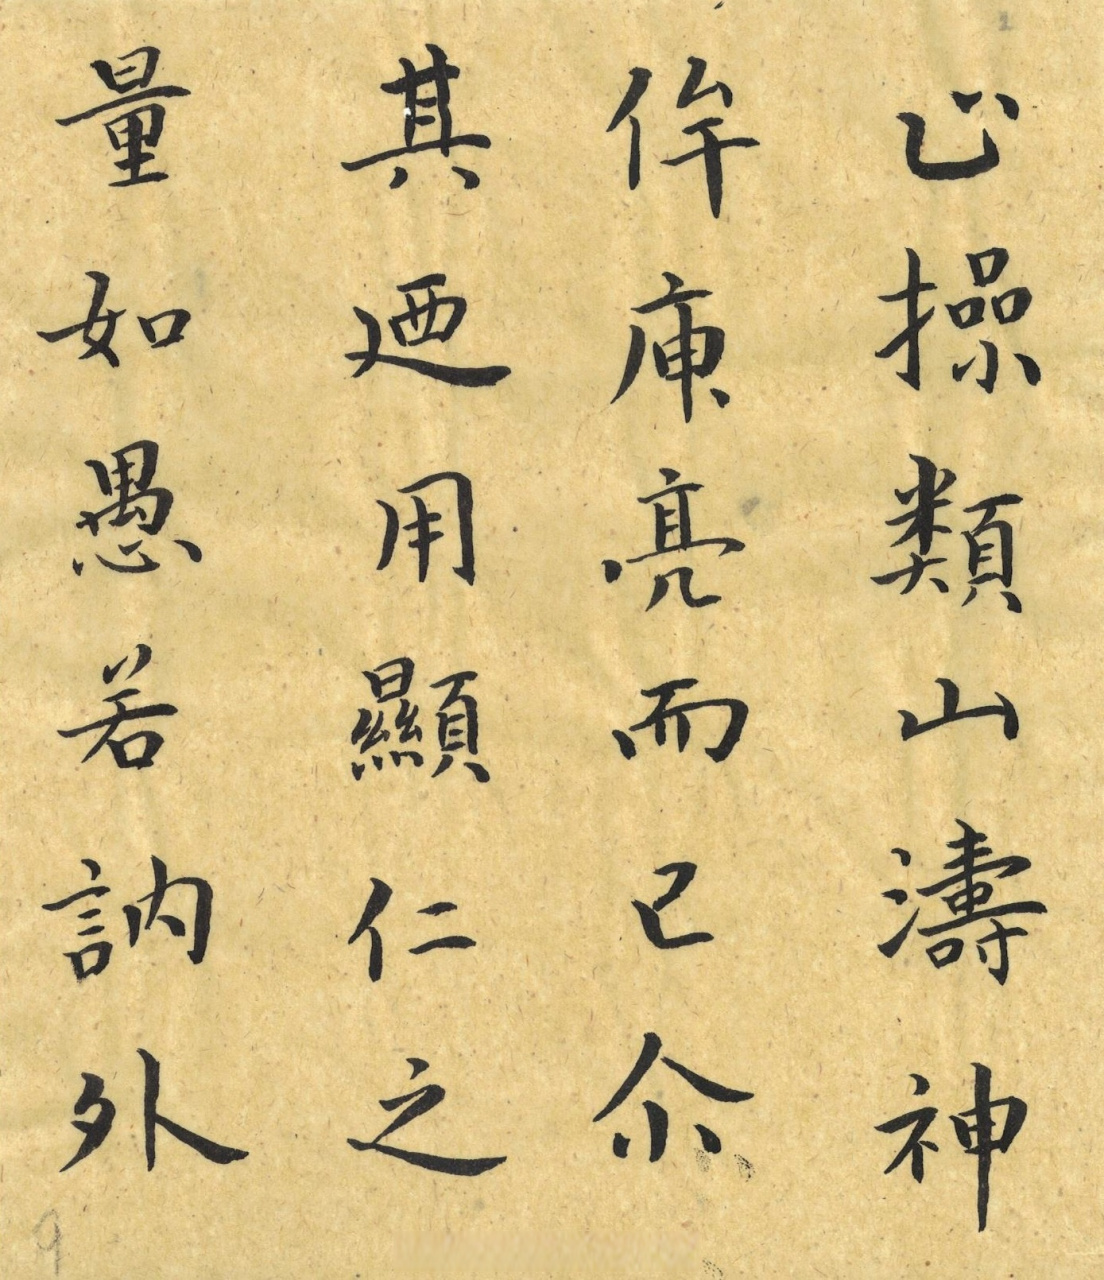 心操類山濤神
侔庾亮而已尒
其迺用顯仁之
量如愚若訥外
9